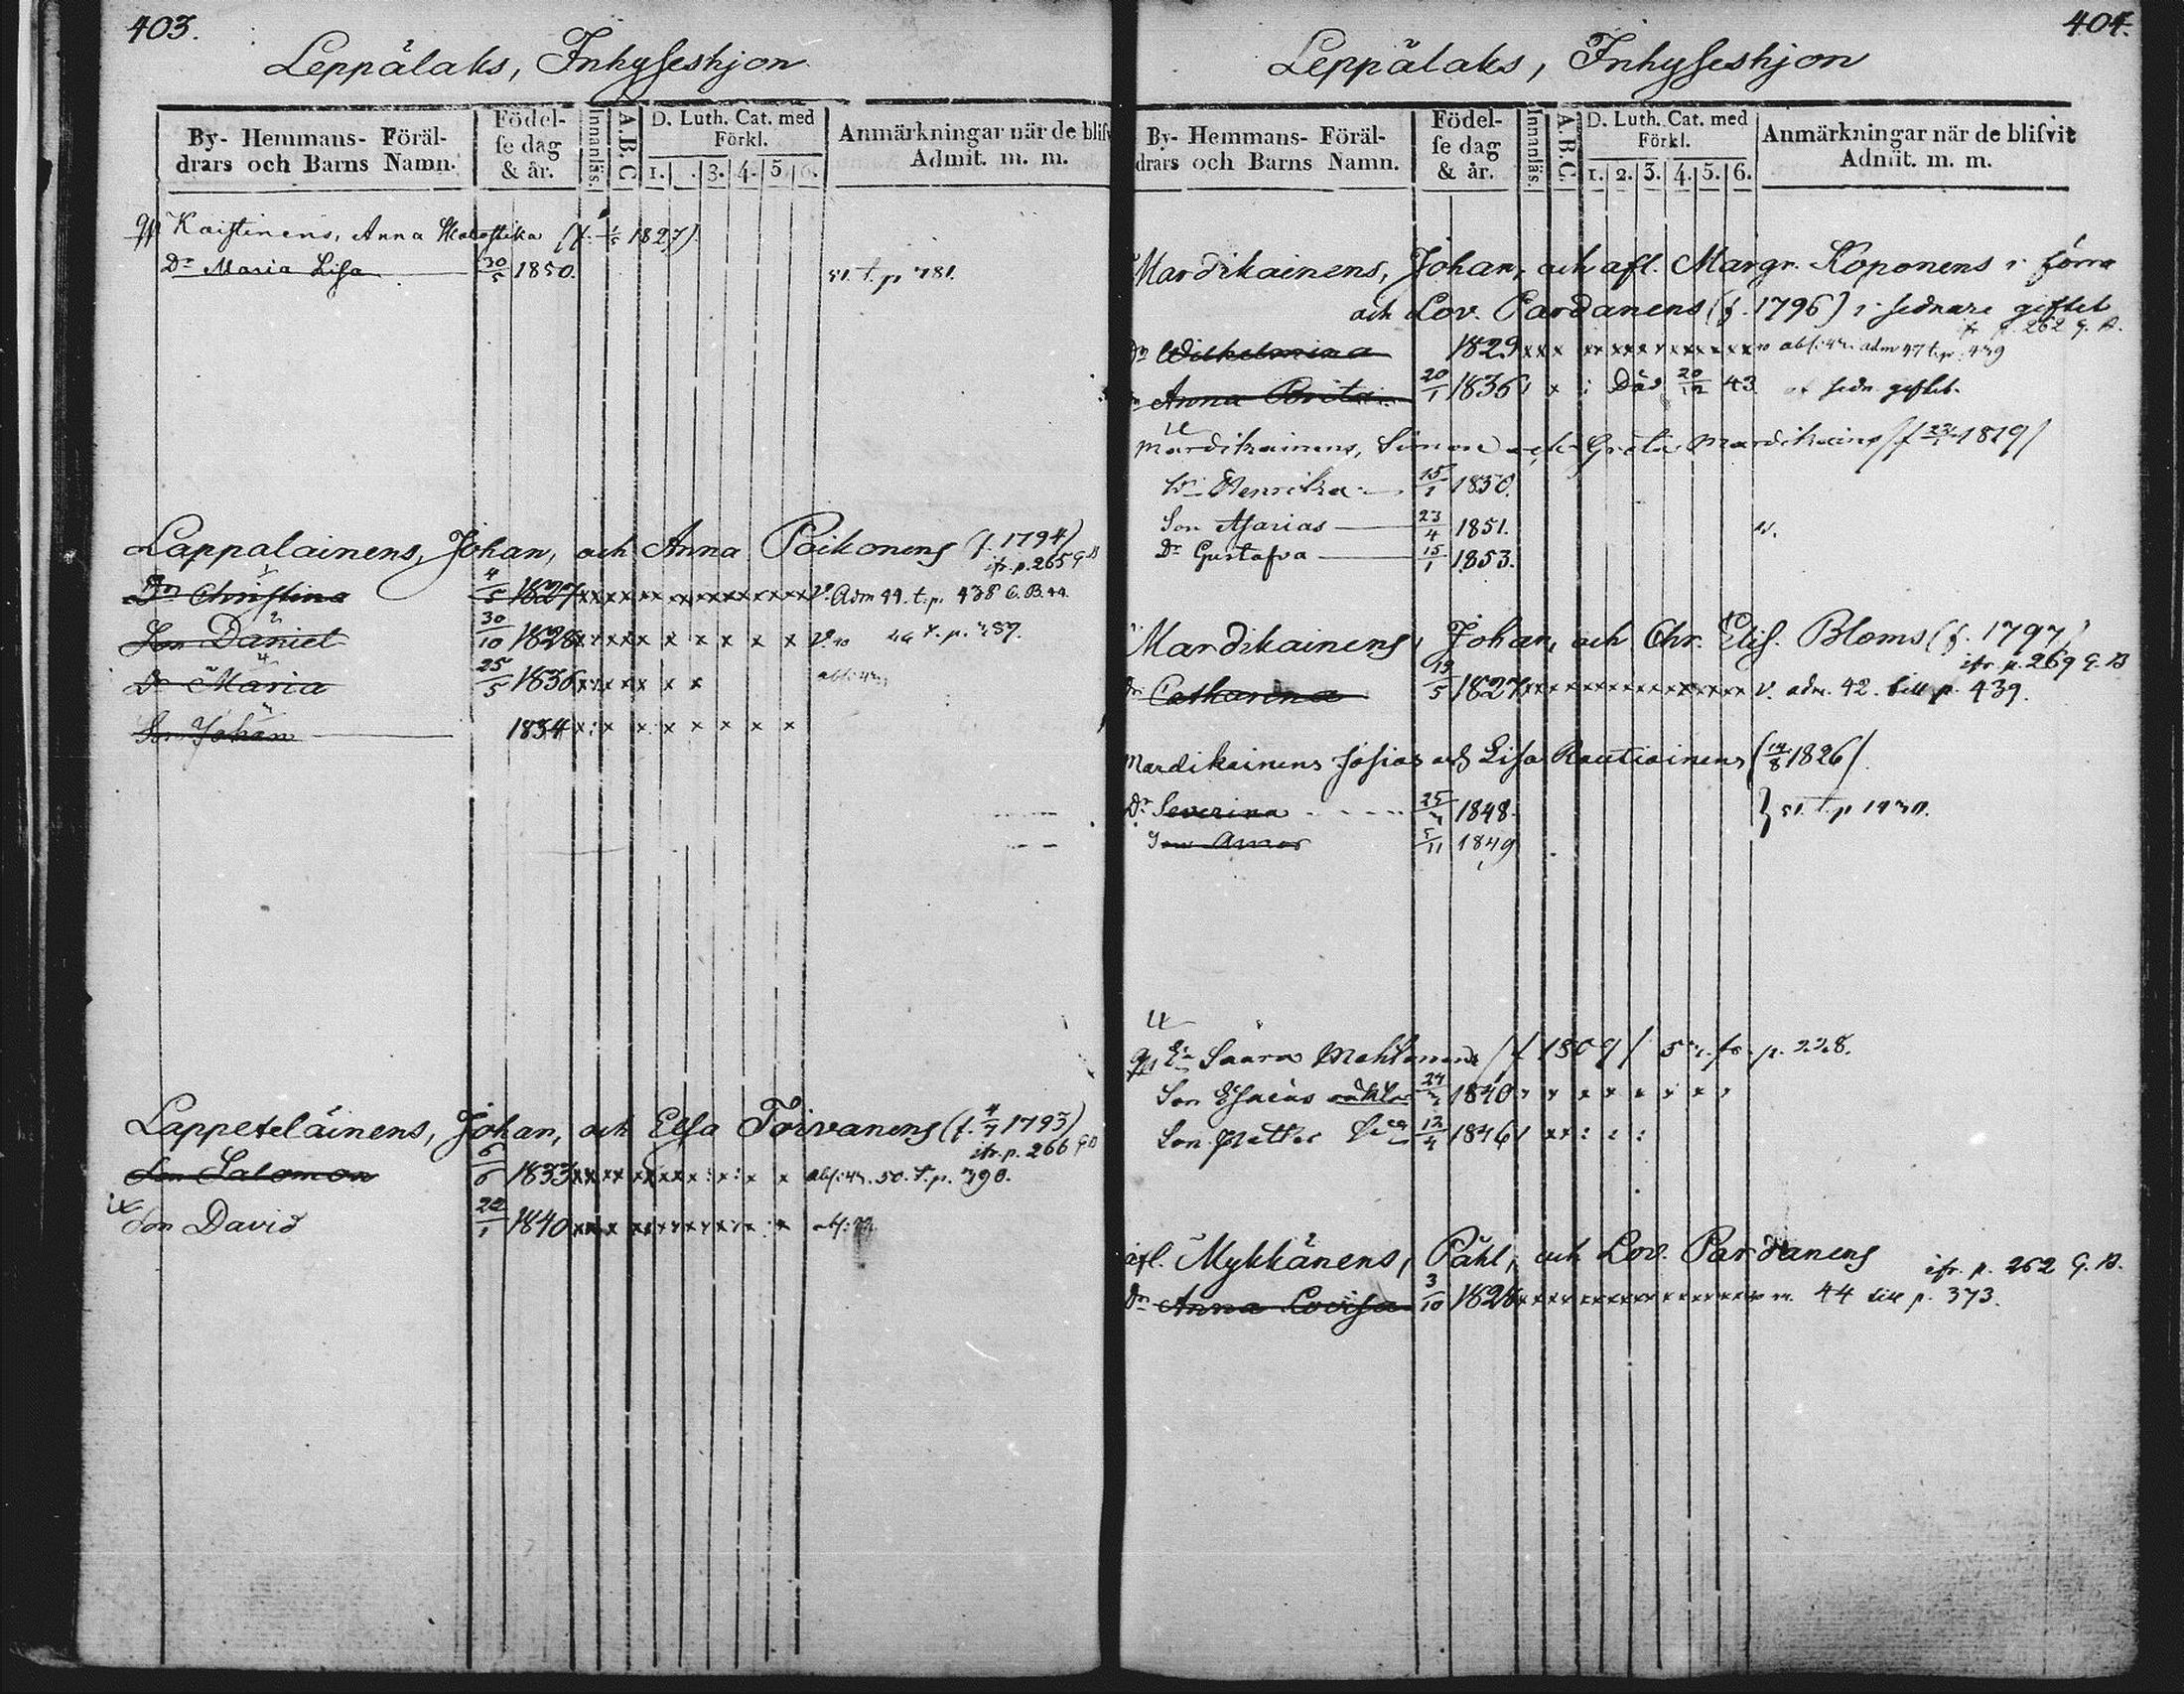 403.
Leppälaks, Inhyseshjon
By- Hemmans- Föräl-
drars och Barns Namn.
Födel-
se dag
& år.
Innanläs.
A.B.C
D. Luth. Cat. med
Förkl.
1. 3. 4. 5 6.
Anmärkningar när de blifv
Admit. m. m.
Kaistinens, Anna (f. 1827)
Dr Maria Lisa 30/5 1850. 51. t. p 781.
Lappalainens, Johan, och Anna Poikonens (f. 1794)
ifr. p. 265 G B
Dr Christina 4/5 1827 xxxx xx xxxxxxxx v. Adm 44. t. p. 438 C. B. 44
Son Daniel 30/10 1828 x x x x x t. p. 787.
Dr Maria 25/5 1836 x x
Son Johan 1834 x : x x x x x x x
Lappeteläinens, Johan, och Elsa Toivanens (f. 4/7 1793)
ifr. p. 266 G B
Son Salomon 6/6 1833 xxxx xxxxx : x : x x abs: 50. t. p. 390.
Son David 22/1 1840 xxxx xxxxxxx : x abs:
404.
Leppälaks, Inhyseshjon
By- Hemmans- Föräl-
drars och Barns Namn.
Födel-
se dag
& år.
Innanläs.
A.B.C.
D. Luth. Cat. med
Förkl.
1. 2. 3. 4. 5. 6.
Anmärkningar när de blifvit
Admit. m. m.
Mardikainens, Johan, och afl. Margr. Koponens i förra
och Lov. Pardanens (f. 1796) i sednare giftet
ifr p. 262 G. B.
Dr Wilhelmina 1829 xxx xx xxxxxxxxxx adm 47 t. p. 439
Dr Anna Brita 20/1 1836 x : Död 20/12 43 af sedn. giftet.
Mardikainens, Simon och Greta Mardikains /f 1819/
Dr Henrika 15/1 1850.
Son Asarias 23/4 1851.
Dr Gustafva 15/1 1853.
Mardikainens, Johan, och Chr. Elis. Bloms (f. 1797)
ifr p. 269 G. B
Dr Catharina 19/5 1827 xxxxxxxxxxxxxxx v. adm. 42. till p. 439.
Mardikainens Josias och Lisa Rautiainens (14/8 1826/
Dr Severina 25/7 1848. } 51. t. p
Son Amos 5/11 1849
Ea Saara Mahlanens /f 1809/ p. 228.
Son Esaias oäkta 24/ 1840 x x x x x x
Son Petter 12/4 1846 xx : :
afl. Mykkänens, Påhl, och Lov. Pardanens
ifr. p. 262 G. B.
Dr Anna Lovisa 3/10 1828 xxxx xxxxxxxxxxxx 44 till p. 373.